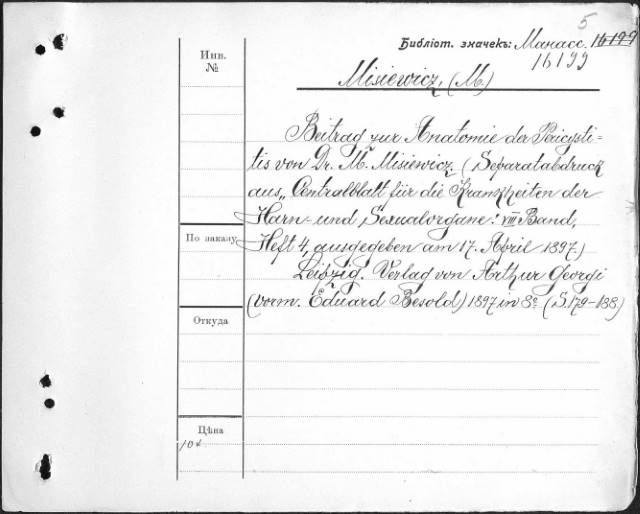 5
Библіот. значекъ: Манасс. 16199
16199
Инв.
№
Misiewicz, (M.)
Beitrag zur Anatomie der Pericysti-
tis von Dr. M. Misiewicz. (Separatabdruck
aus „Centralblatt für die Krankheiten der
Harn- und Sexualorgane". VIII Band,
По заказу
Heft 4, ausgegeben am 17. April 1897.)
Leipzig. Verlag von Arthur Georgi
(vorm. Eduard Besold) 1897 in 8° (S. 179-188)
Откуда
Цѣна